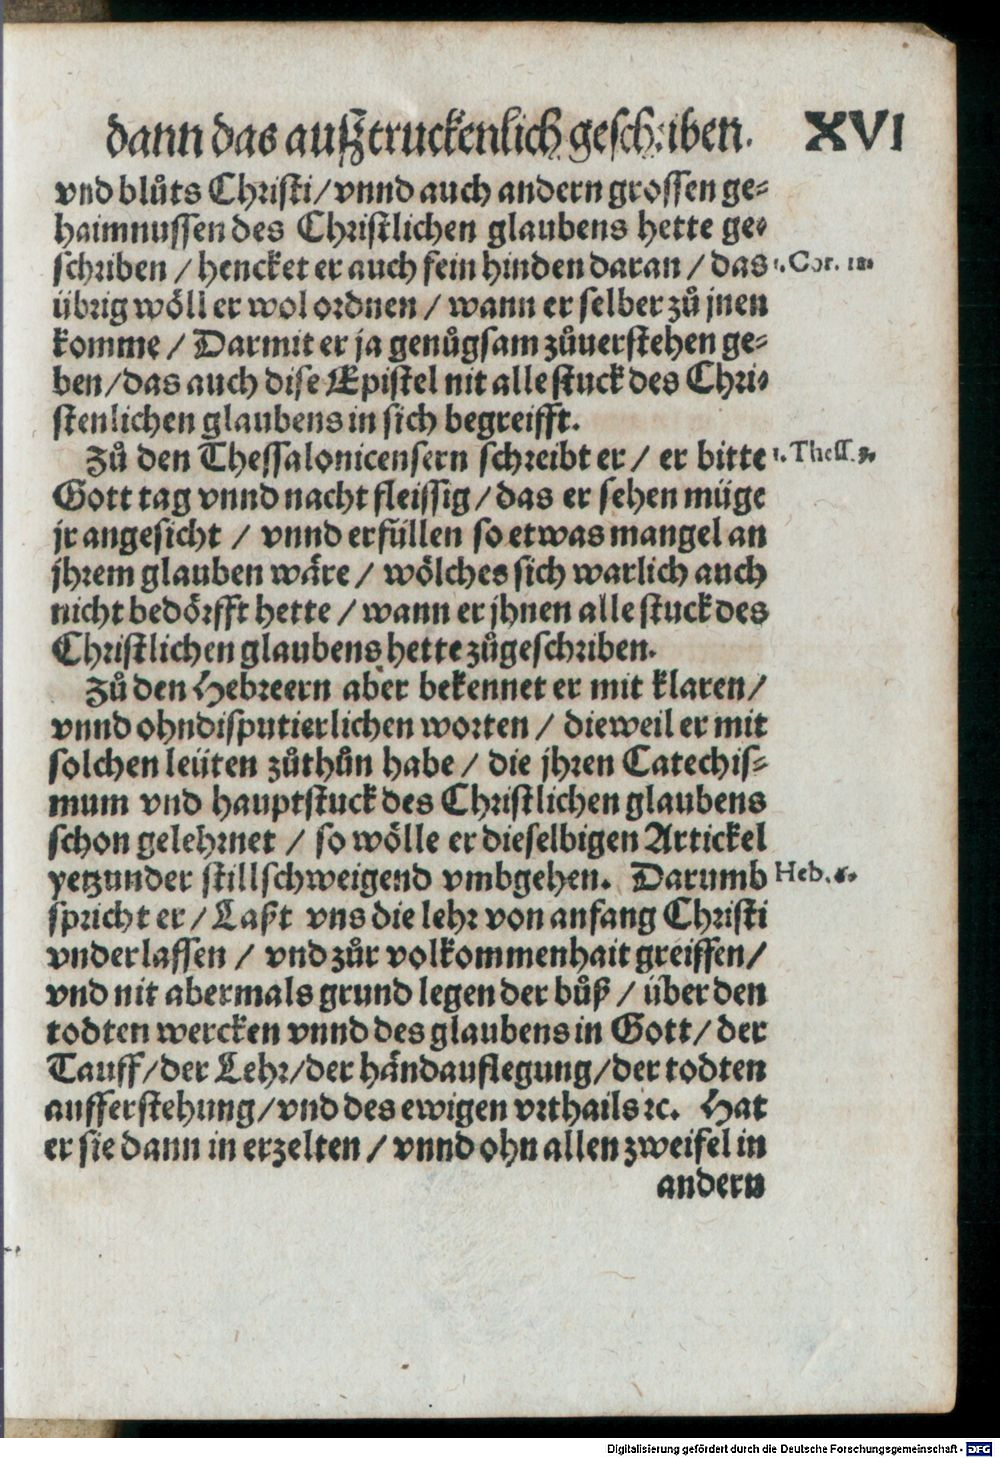 dann das außtruckenlich geschriben. XVI
vnd blůts Christi/vnnd auch andern grossen ge⸗
haimnussen des Christlichen glaubens hette ge⸗
schriben / hencket er auch fein hinden daran / das 1. Cor. 11.
übrig wöll er wol ordnen / wann er selber zů jnen
komme / Darmit er ja genůgsam zůuerstehen ge⸗
ben/das auch dise Epistel nit alle stuck des Chri⸗
stenlichen glaubens in sich begreifft.
Zů den Thessalonicensern schreibt er / er bitte 1. Thess. 3.
Gott tag vnnd nacht fleissig / das er sehen müge
jr angesicht / vnnd erfüllen so etwas mangel an
jhrem glauben wäre / wölches sich warlich auch
nicht bedörfft hette / wann er jhnen alle stuck des
Christlichen glaubens hette zůgeschriben.
Zů den Hebreern aber bekennet er mit klaren/
vnnd ohndisputierlichen worten / dieweil er mit
solchen leüten zůthůn habe / die jhren Catechis⸗
mum vnd hauptstuck des Christlichen glaubens
schon gelehrnet / so wölle er dieselbigen Artickel
yetzunder stillschweigend vmbgehen. Darumb Heb. 6.
spricht er / Laßt vns die lehr von anfang Christi
vnderlassen / vnd zůr volkommenhait greiffen/
vnd nit abermals grund legen der bůß / über den
todten wercken vnnd des glaubens in Gott/ der
Tauff/der Lehr/der händauflegung/der todten
aufferstehung/vnd des ewigen vrthails ꝛc. Hat
er sie dann in erzelten / vnnd ohn allen zweifel in
andern
Digitalisierung gefördert durch die Deutsche Forschungsgemeinschaft - DFG